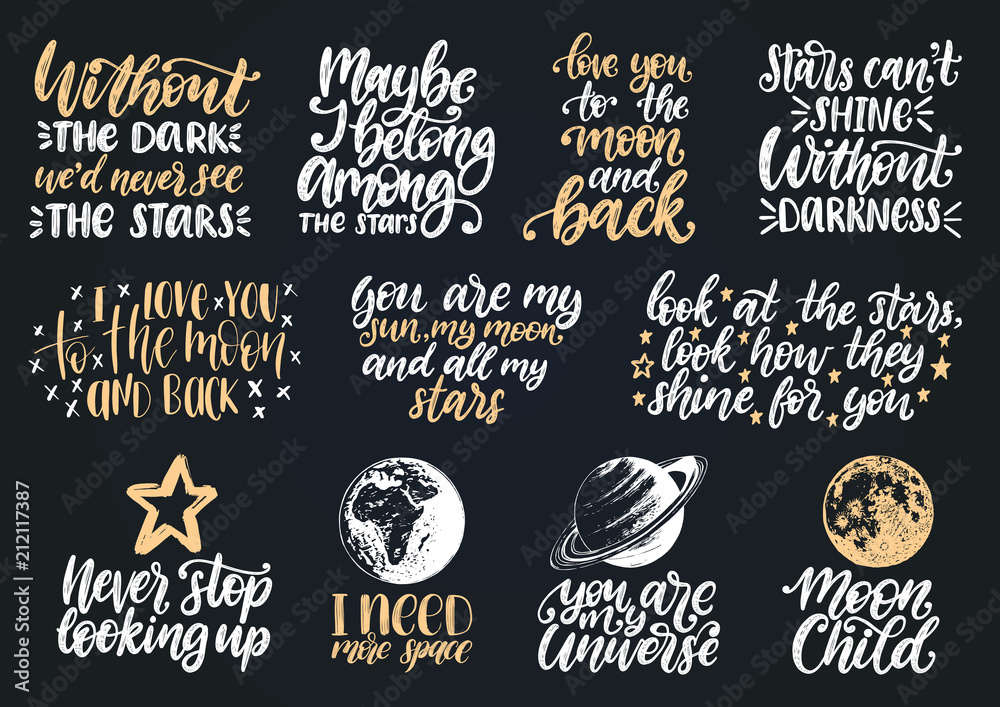 Without
THE DARK
we'd never see
THE STARS
Maybe
I belong
among
THE STARS
love you
to the
moon
and
back
Stars can't
SHINE
Without
DARKNESS
I LOVE YOU
to the moon
AND BACK
you are my
sun, my moon
and all my
stars
look at the stars,
look how they
shine for you
Never stop
looking up
I NEED
more space
you are
my
Universe
Moon
Child
Adobe Stock | #212117387